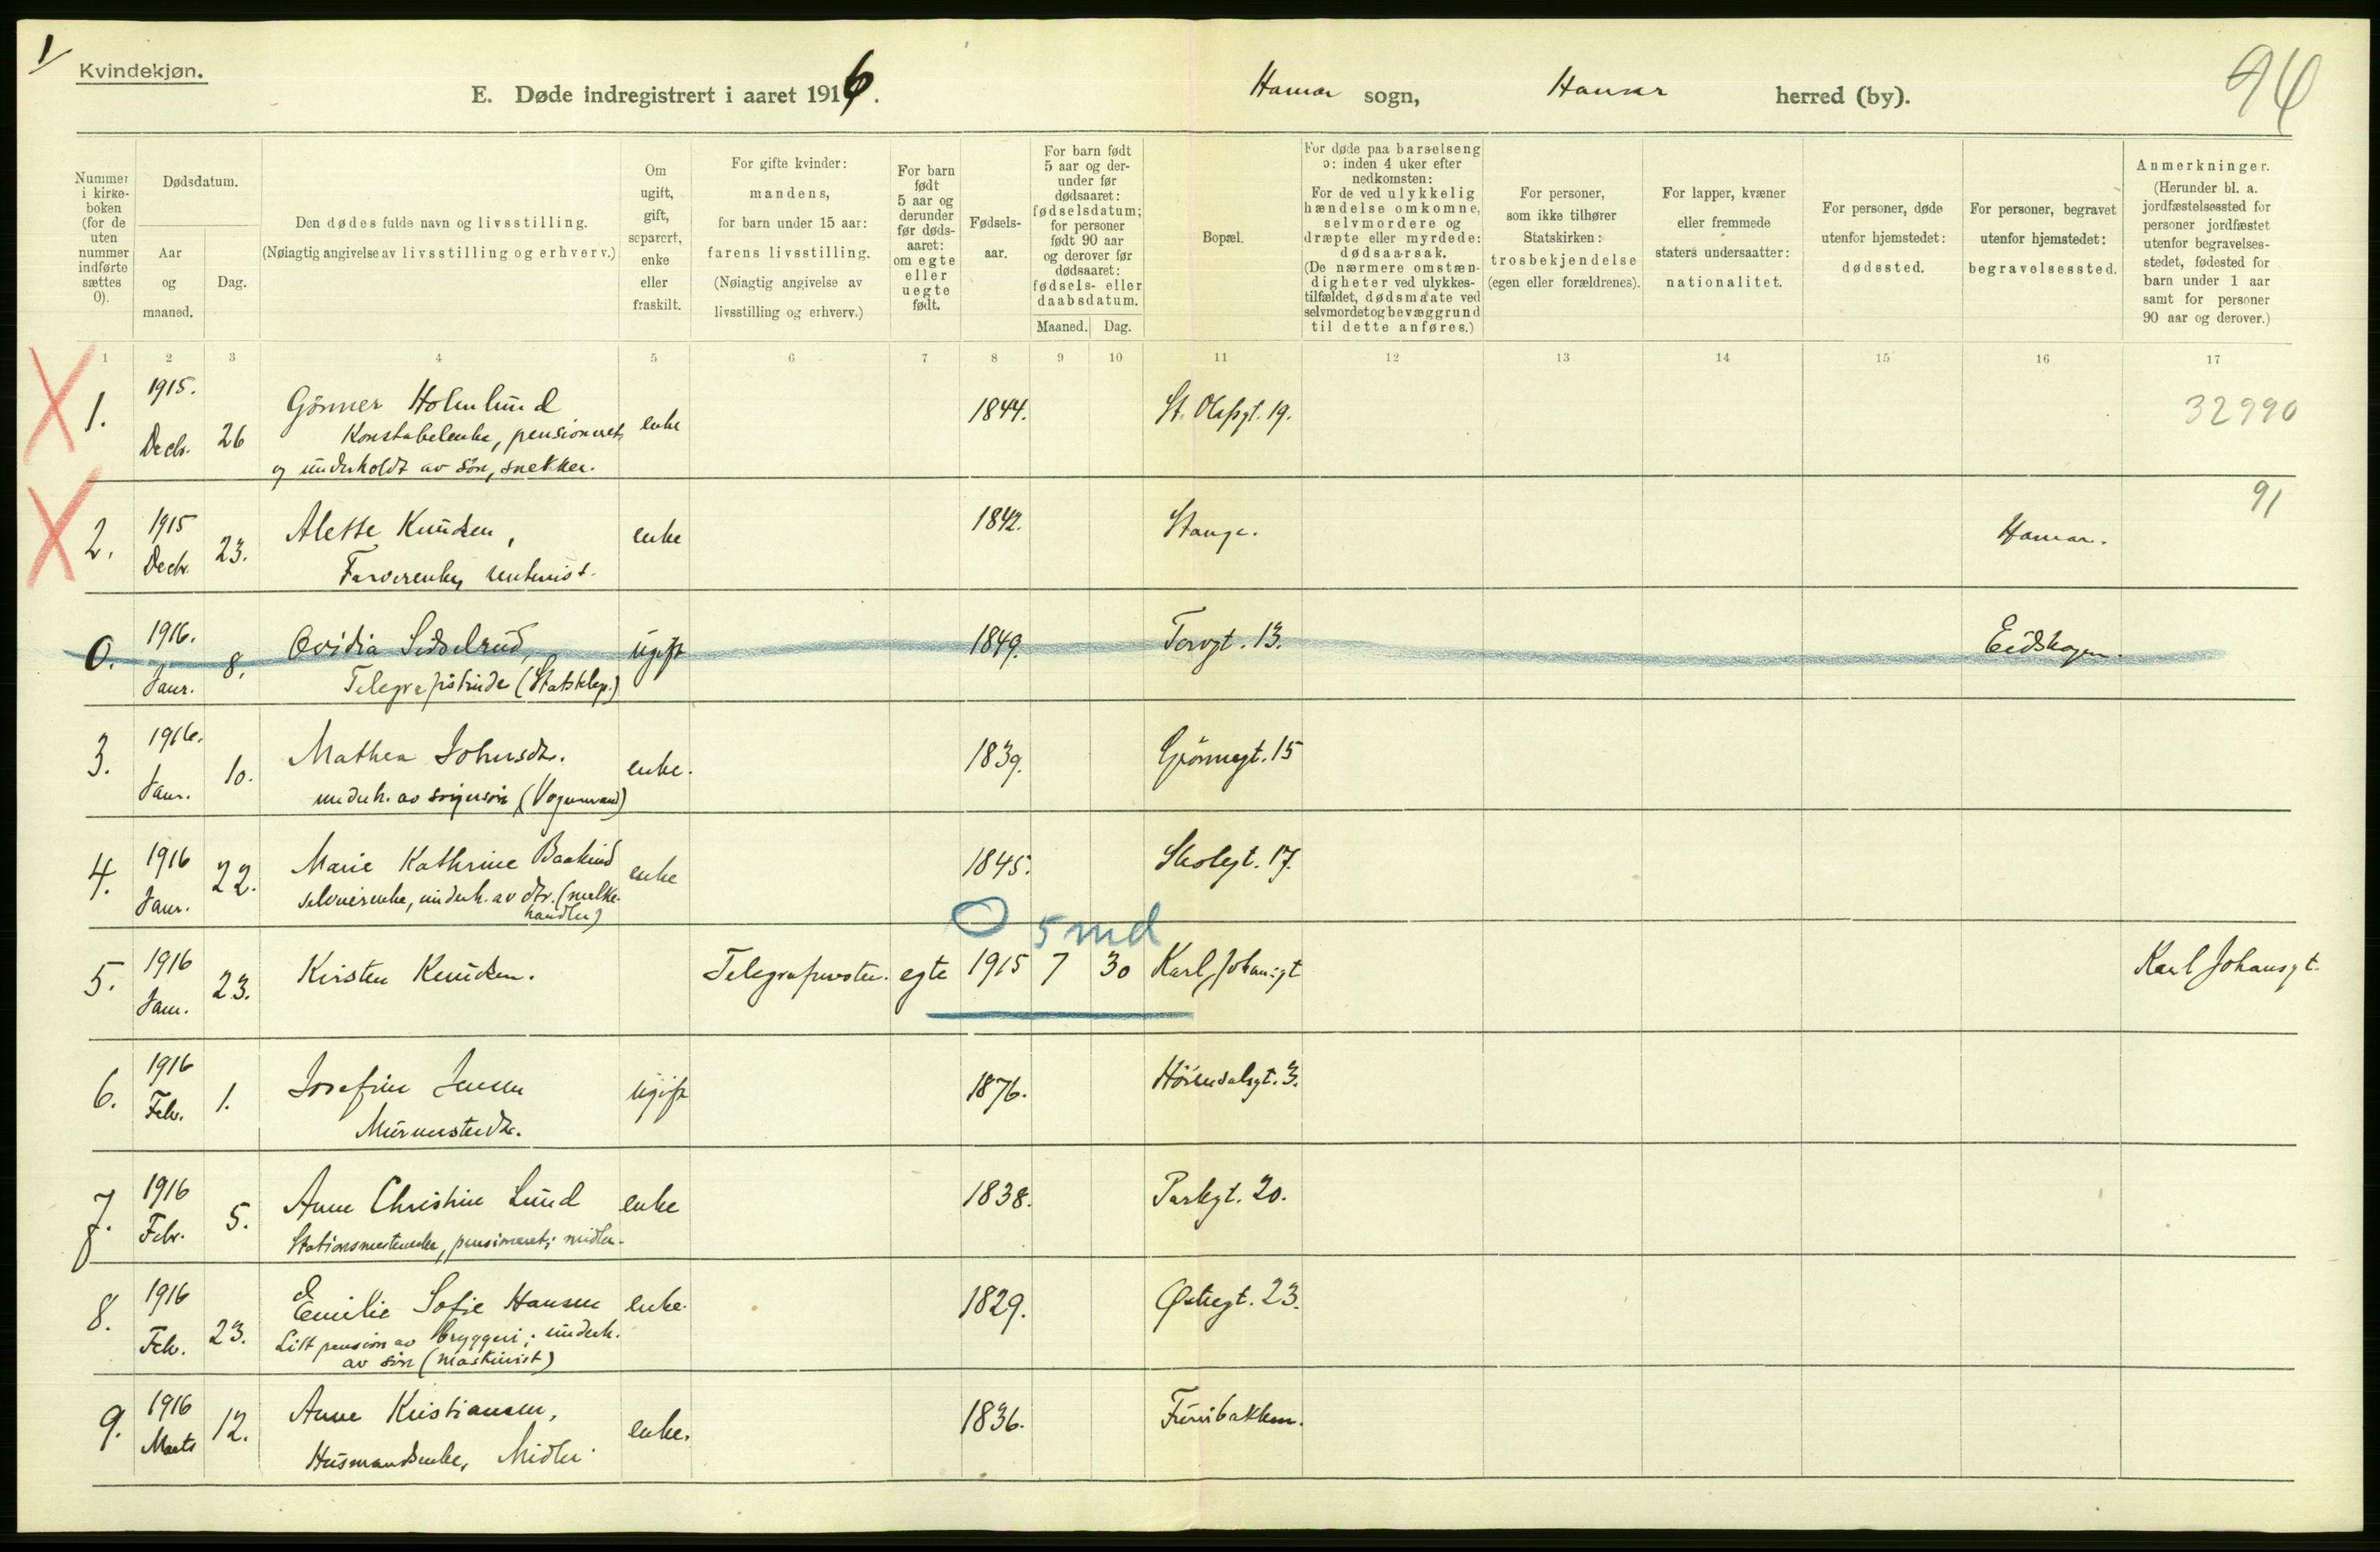 1/
Kvindekjøn.
E. Døde indregistrert i aaret 1916.
Hamar sogn, Hamar herred (by).
96
Nummer
i kirke-
boken
(for de
uten
nummer
indførte
sættes
0).
Dødsdatum.
Aar
og
maaned.
Dag.
Den dødes fulde navn og livsstilling.
(Nøiagtig angivelse av livsstilling og erhverv.)
Om
ugift,
gift,
separert,
enke
eller
fraskilt.
For gifte kvinder:
mandens,
for barn under 15 aar:
farens livsstilling.
(Nøiagtig angivelse av
livsstilling og erhverv.)
For barn
født
5 aar og
derunder
før døds-
aaret:
om egte
eller
uegte
født.
Fødsels-
aar.
For barn født
5 aar og der-
under før
dødsaaret:
fødselsdatum;
for personer
født 90 aar
og derover før
dødsaaret:
fødsels- eller
daabsdatum.
Maaned. Dag.
Bopæl.
For døde paa barselseng
ɔ: inden 4 uker efter
nedkomsten:
For de ved ulykkelig
hændelse omkomne,
selvmordere og
dræpte eller myrdede:
dødsaarsak.
(De nærmere omstæn-
digheter ved ulykkes-
tilfældet, dødsmaate ved
selvmordet og bevæggrund
til dette anføres.)
For personer,
som ikke tilhører
Statskirken:
trosbekjendelse
(egen eller forældrenes).
For lapper, kvæner
eller fremmede
staters undersaatter:
nationalitet.
For personer, døde
utenfor hjemstedet:
dødssted.
For personer, begravet
utenfor hjemstedet:
begravelsessted.
Anmerkninger.
(Herunder bl. a.
jordfæstelsessted for
personer jordfæstet
utenfor begravelses-
stedet, fødested for
barn under 1 aar
samt for personer
90 aar og derover.)
1 2 3 4 5 6 7 8 9 10 11 12 13 14 15 16 17
1. 1915. Decb. 26 Gönner Holmlund enke 1844. St. Olafsgt. 19. 32990
Konstabelenke, pensioneret
og underholdt av søn, snekker.
2. 1915 Decb. 23. Alette Knudsen, enke 1842. Stange. Hamar. 91
Farverenke, rentenist.
0. 1916. Janr. 8. Ovidia Sidselrud, ugift 1849. Torvgt. 13. Eidskogen.
Telegrafistinde (Statstelegr.)
3. 1916. Janr. 10. Mathea Johnsdtr. enke. 1839. Grønnegt. 15
underh. av svigersøn (Vognmand)
4. 1916 Janr. 22. Marie Kathrine Baakind enke 1845. Skolegt. 17.
selveierenke, underh. av dtr. (melke-
handler)
5 md
5. 1916 Janr. 23. Kirsten Knudsen. Telegrafmester. egte 1915 7 30 Karl Johansgt Karl Johansgt.
6. 1916 Feb. 1. Josefine Jensen ugift 1876. Høiensalsgt. 3.
Murmesterdtr.
7. 1916 Febr. 5. Anne Christine Lund enke 1838. Parkgt. 20.
Stationsmesterenke, pensioneret; midler.
8. 1916 Feb. 23. Emilie Sofie Hansen enke. 1829. Østregt. 23.
Litt pension av bryggeri; underh.
av søn (maskinist)
9. 1916 Marts 12. Anne Kristiansen, enke. 1836. Furubakken.
Husmandsenke, Midler.